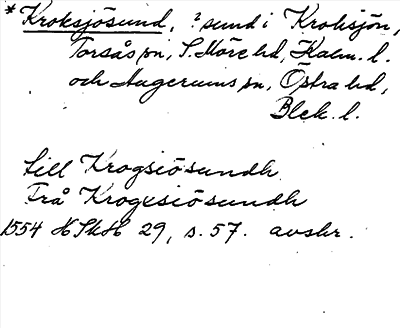 * Kroksjösund, ? sund i Kroksjön,
Torsås sn, S. Möre hd, Kalm. l.
och Augerums sn, Östra hd,
Blek. l.
till Krogsiösundh
Frå Krogesiösundh
1554 HSkH 29, s. 57. avskr.